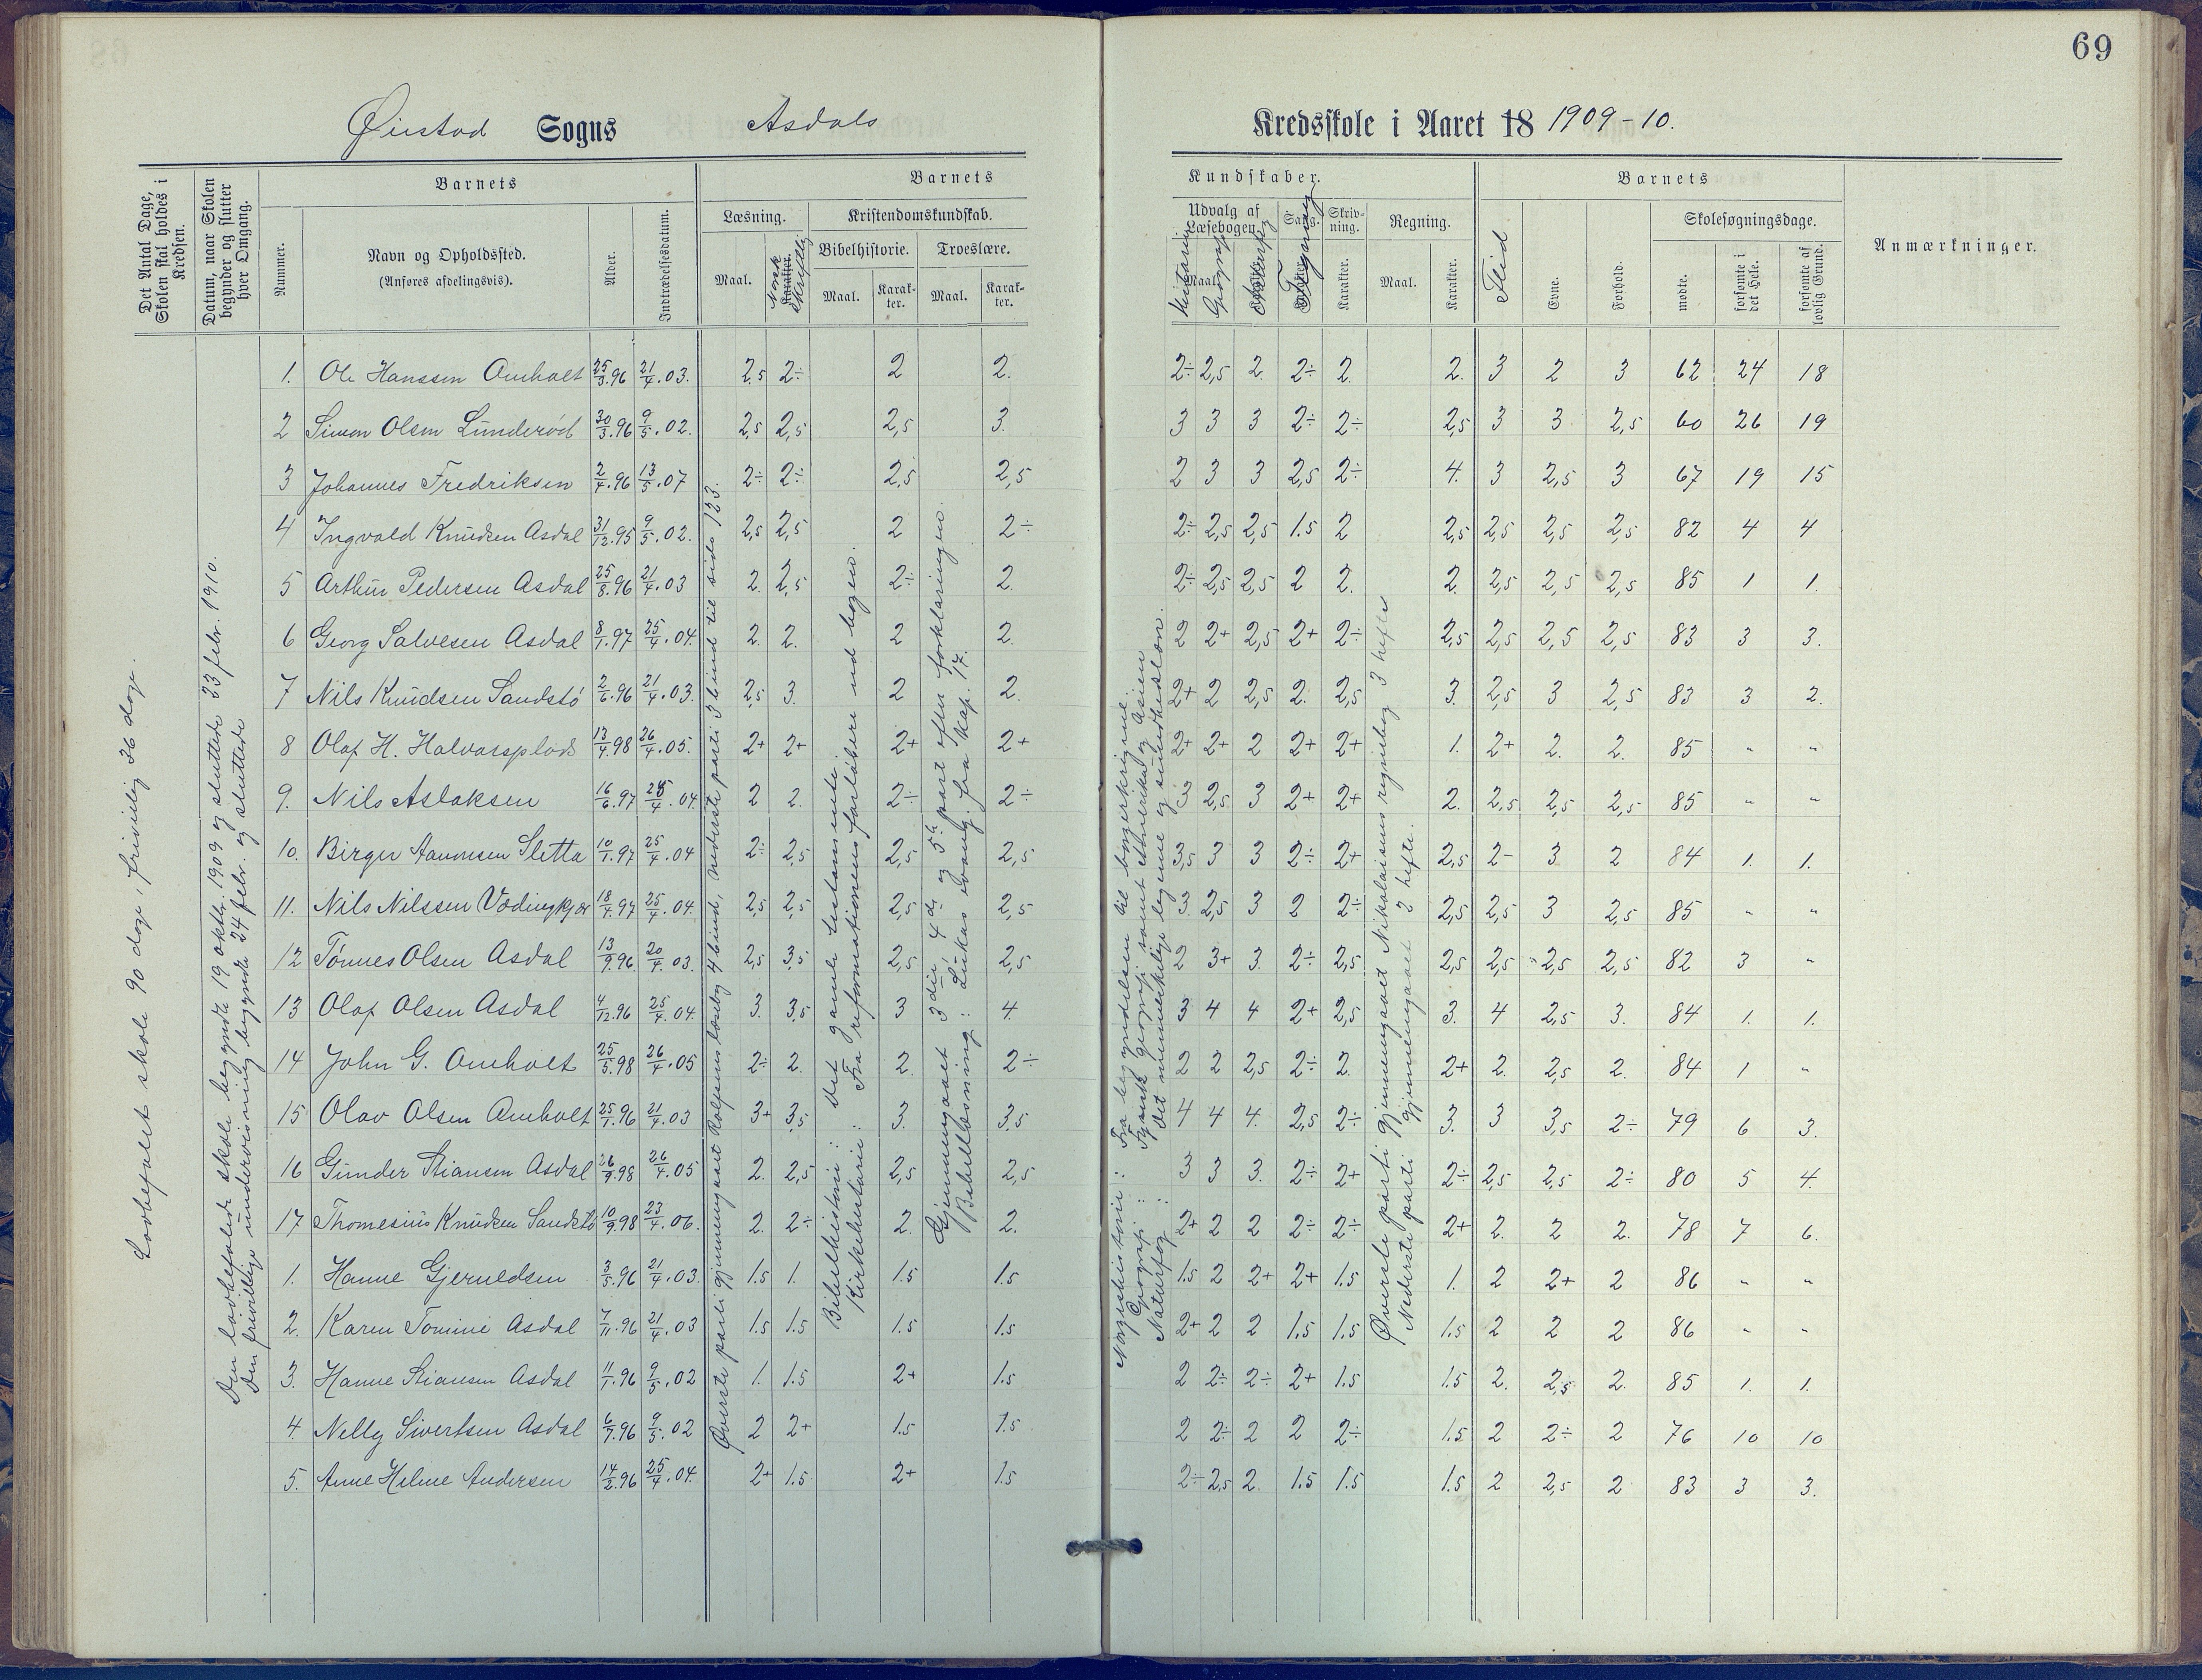 69
Øiestad Sogns Asdals
Kredsskole i Aaret 18 1909-10.
Det Antal Dage, Skolen skal holdes i Kredsen.
Datum, naar Skolen begynder og slutter hver Omgang.
Barnets
Nummer.
Navn og Opholdssted.
(Anføres afdelingsvis).
Alder.
Indtrædelsesdatum.
Barnets
Læsning.
Maal.
Norsk Skriftlig
Karakter.
Kristendomskundskab.
Bibelhistorie.
Maal.
Karakter.
Troeslære.
Maal.
Karakter.
Kundskaber.
Udvalg af Læsebogen.
Maal.
Historie
Geografi
Sang.
Tegning
Skrivning.
Karakter.
Regning.
Maal.
Karakter.
Barnets
Flid
Evne.
Forhold.
Skolesøgningsdage.
mødte.
forsømte i det Hele.
forsømte af lovlig Grund.
Anmærkninger.
Lovbefalet skole 90 dage, frivillig 36 dage.
Den lovbefalede skole begyndte 19 oktbr. 1909 og sluttede 23 febr. 1910.
Den frivillige undervisning begyndte 24 febr. og sluttede
Øverste parti gjennemgaat Rolfsens læsebog 4 bind, nederste parti 3 bind til side 123.
Bibelhistorie: Det gamle testamente.
Kirkehistorie: Fra reformationens forløbere ud bogen.
Gjennemgaaet 3die, 4de og 5te part efter forklaringen.
Bibellæsning: Lukas evang. fra kap. 17.
Norgeshistorie: Fra begyndelsen til borgerkrigene.
Geografi: Fysisk geografi samt Amerika og Asien
Naturfag: Det menneskelige legeme og sundhedslæren.
Øverste parti gjennemgaaet Nikolaisens regnebog 3 hefte
Nederste parti gjennemgaaet 2 hefte.
1. Ole Hanssen Omholt 25/3.96 21/4.03. 2,5 2÷ 2 2. 2÷ 2,5 2 2÷ 2. 2. 3 2 3 62 24 18
2 Simon Olsen Lunderød 30/3.96 9/5.02. 2,5 2,5 2,5 3. 3 3 3 2÷ 2÷ 2,5 3 3 2,5 60 26 19
3 Johannes Fredriksen 2/4.96 13/5.07 2÷ 2÷ 2,5 2,5 2 3 3 2,5 2÷ 4. 3 2,5 3 67 19 15
4 Ingvald Knudsen Asdal 31/12.95 9/5.02. 2,5 2,5 2 2÷ 2÷ 2,5 2,5 1.5 2 2,5 2,5 2,5 2,5 82 4 4
5 Arthur Pedersen Asdal 25/8.96 21/4.03 2. 2,5 2÷ 2. 2÷ 2,5 2,5 2 2. 2. 2,5 2,5 2,5 85 1 1.
6 Georg Salvesen Asdal 8/1.97 25/4.04. 2. 2. 2 2. 2 2+ 2,5 2+ 2÷ 2,5 2,5 2,5 2,5 83 3 3.
7 Nils Knudsen Sandstø 2/6.96 21/4.03. 2,5 3. 2 2. 2+ 2 2,5 2. 2,5 3. 2,5 3 2,5 83 3 2.
8 Olaf H. Halvorsplads 13/4.98 26/4.05. 2+ 2+ 2+ 2+ 2+ 2+ 2 2+ 2+ 1. 2+ 2. 2. 85 " "
9. Nils Aslaksen 16/6.97 25/4.04. 2 2. 2÷ 2÷ 3 2,5 3 2+ 2+ 2. 2,5 2,5 2,5 85 " "
10. Birger Aanonsen Sletta 10/1.97 25/4.04 2÷ 2,5 2,5 2,5 3,5 3 3 2÷ 2+ 2,5 2- 3 2 84 1. 1.
11. Nils Nilssen Vødingkjær 18/4.97 25/4.04. 2,5 2,5 2,5 2,5 3 2,5 3 2 2÷ 2,5 2,5 3 2,5 85 " "
12 Tønnes Olsen Asdal 13/9.96. 20/4.03. 2,5 3,5 2,5 2,5 2 3+ 3. 2÷ 2,5 2,5 2,5 2,5 2,5 82 3 "
13 Olaf Olsen Asdal 4/12.96 25/4.04. 3. 3,5 3 4. 3 4 4 2+ 2,5 3. 4 2,5 3. 84 1. 1.
14 John G. Omholt 25/5.98 26/4.05 2÷ 2. 2. 2÷ 2 2 2,5 2÷ 2. 2+ 2. 2,5 2. 84 1 "
15 Olav Olsen Omholt 25/1.96 21/4.03 3+ 3,5 3. 3,5 4 4 4. 2,5 2÷ 3. 3 3,5 2÷ 79 6 3.
16 Gunder Stiansen Asdal 26/9.98 26/4.05 2. 2,5 2,5 2,5 3 3 3. 2÷ 2+ 2÷ 2,5 2,5 2÷ 80 5 4.
17 Thomesius Knudsen Sandstø 10/9.98 23/4.06. 2. 2÷ 2. 2. 2+ 2 2 2÷ 2÷ 2+ 2. 2 2. 78 7 6.
1. Hanne Gjeruldsen 3/5.96 21/4.03. 1.5 1. 1.5 1.5 1.5 2 2+ 2+ 1.5 1. 2 2+ 2 86 " "
2. Karen Tomine Asdal 7/11.96 21/4.03 1.5 1.5 1.5 1.5 2+ 2 2 1.5 1.5 1.5 2 2 2 86 " "
3. Hanne Stiansen Asdal 11/1.96 9/5.02 1. 1.5 2+ 1.5 2 2÷ 2÷ 2+ 1.5 1.5 2. 2,5 2. 85 1. 1.
4. Nelly Sivertsen Asdal 6/7.96 9/5.02 2 2+ 1.5 1.5 2 2÷ 2 2 2÷ 1.5 2 2÷ 2 76 10 10
5. Anne Helene Andersen 14/2.96 25/4.04. 2+ 1.5 2+ 1.5 2÷ 2,5 2. 1.5 1.5 1.5 2 2,5 2 83 3 3.